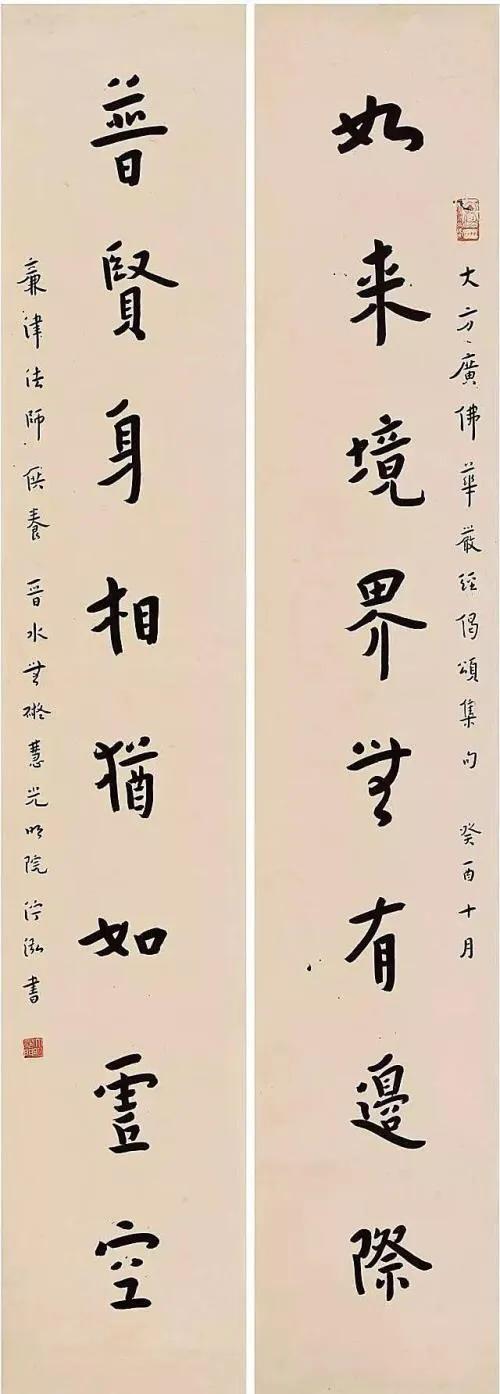 大方廣佛華嚴經偈頌集句 癸酉十月
如来境界無有邊際
普賢身相猶如虛空
廣津法師供養 晉水無礙慧光明院沙門弘一書